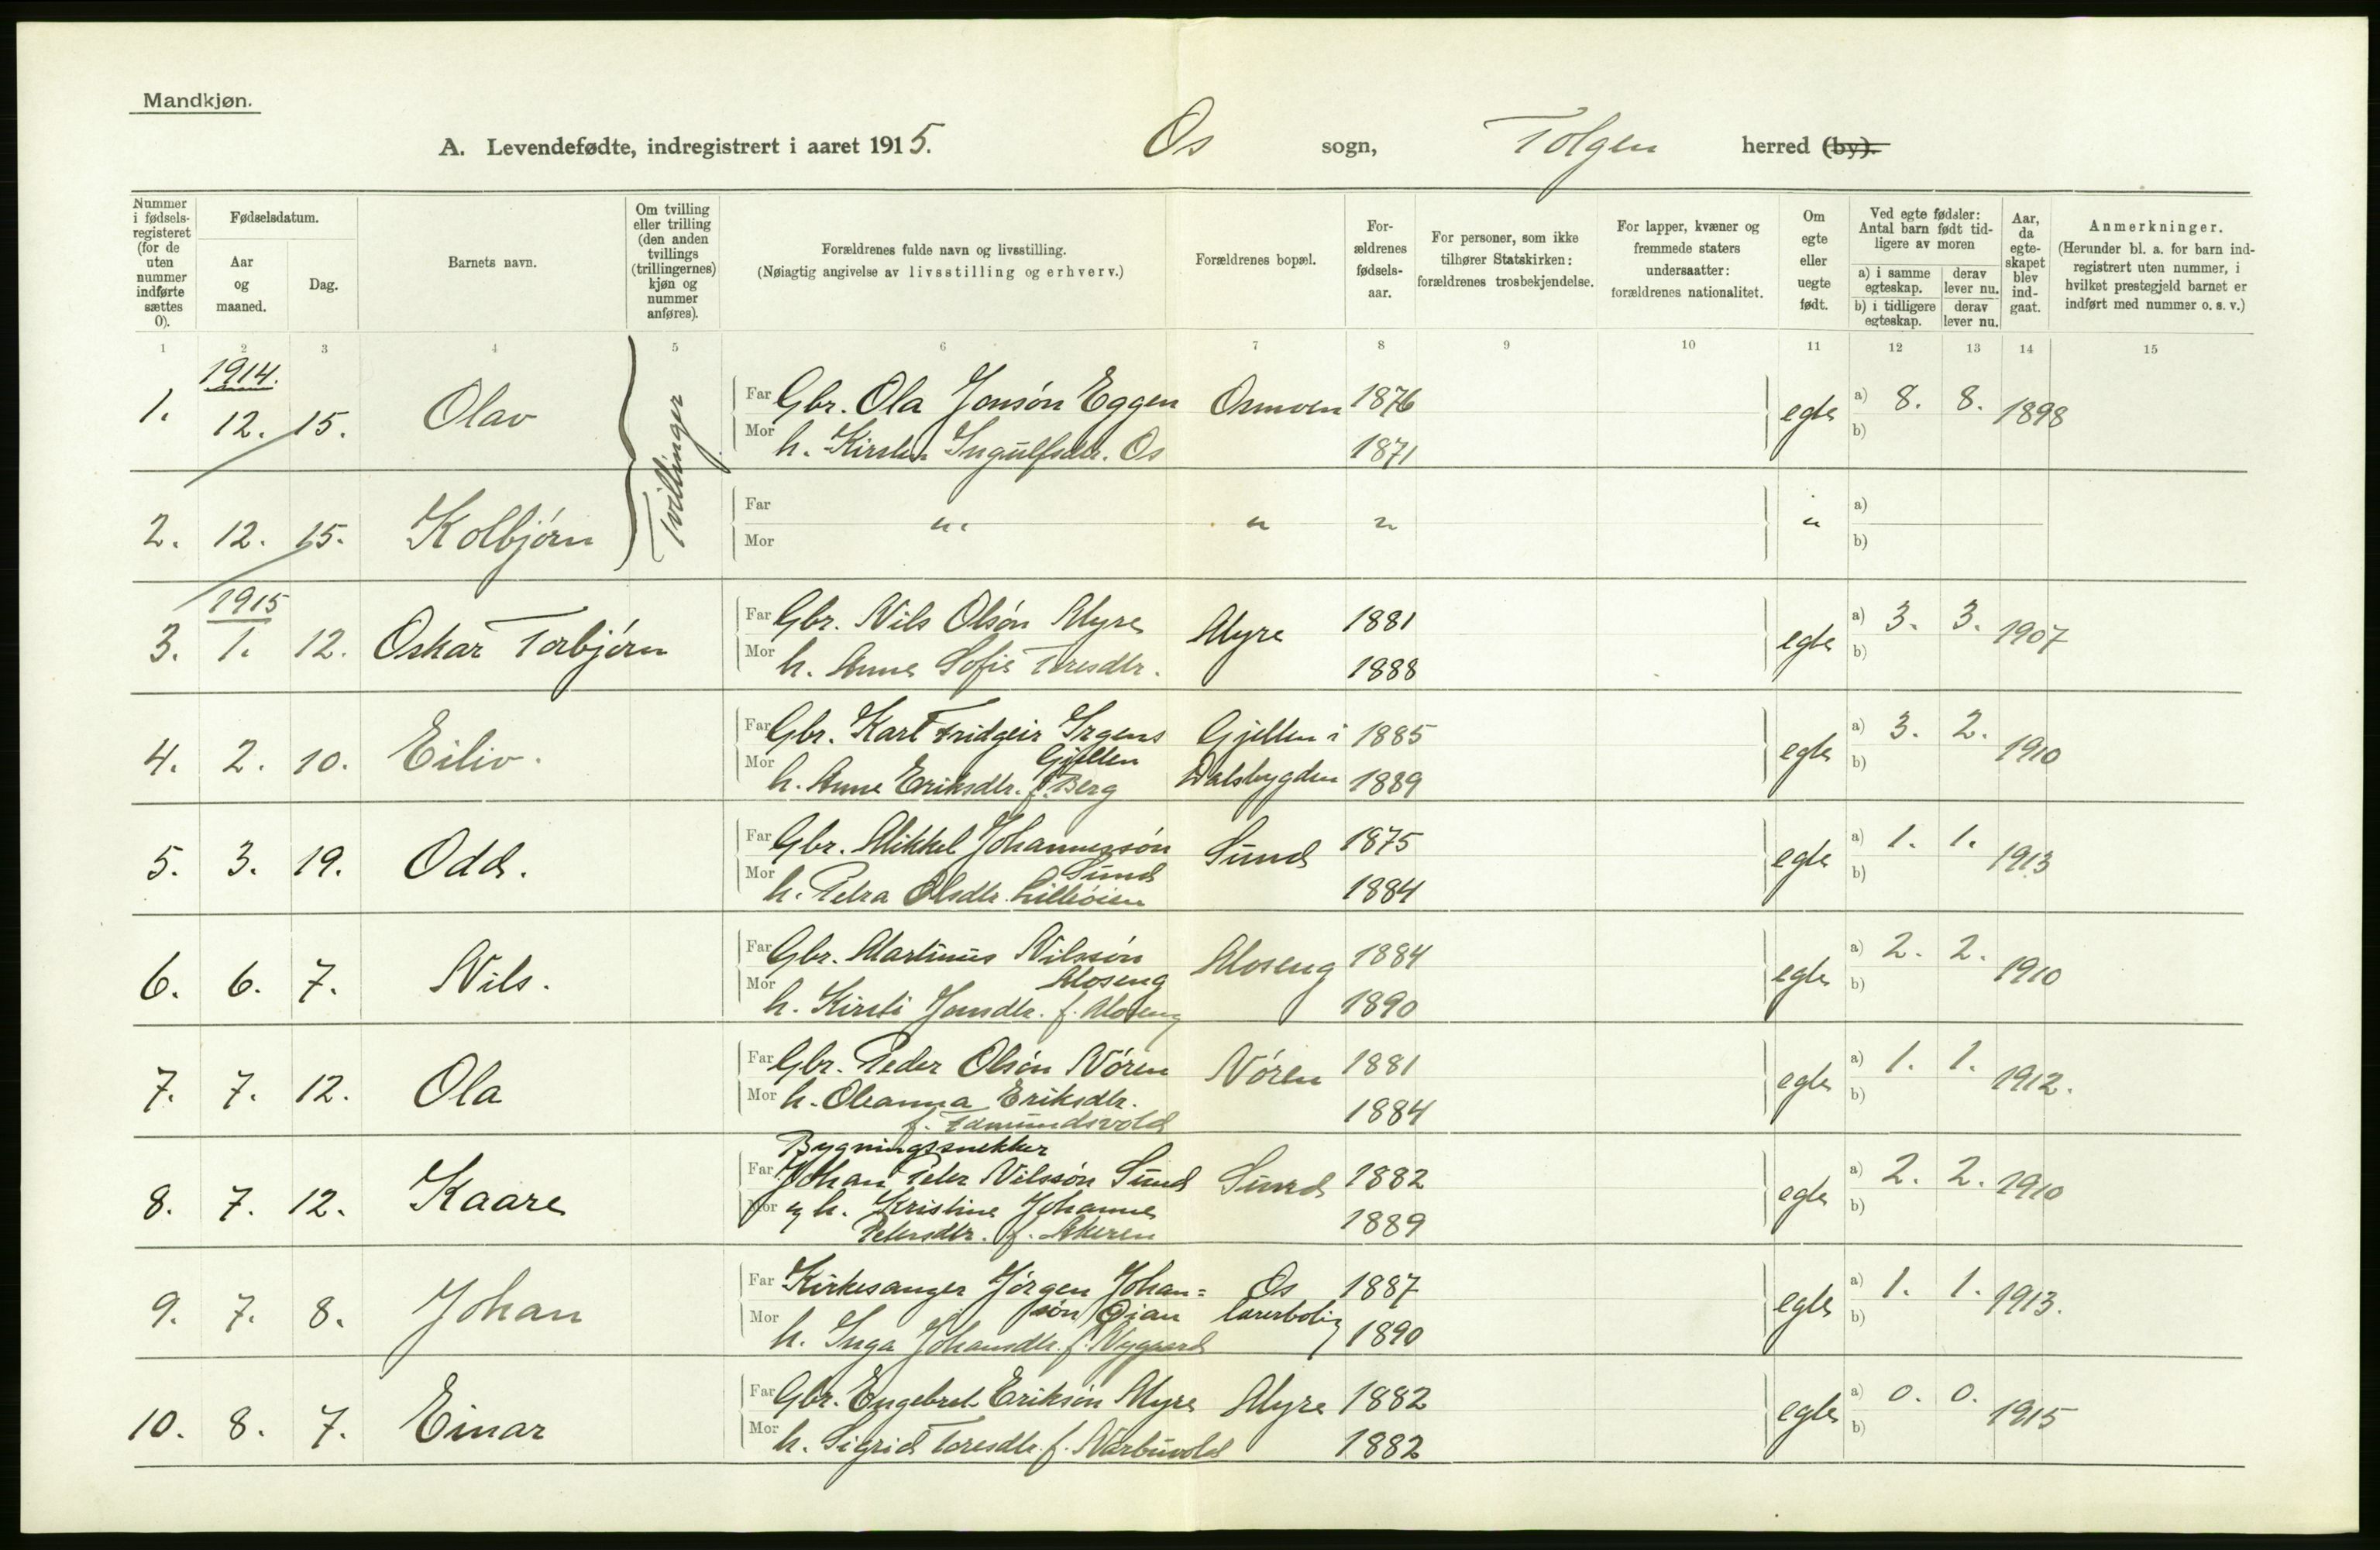 Mandkjøn.
A. Levendefødte, indregistrert i aaret 1915. Os sogn, Tolgen herred (by).
Nummer i fødsels-registeret (for de uten nummer indførte sættes 0).
Fødselsdatum.
Aar og maaned.
Dag.
Barnets navn.
Om tvilling eller trilling (den anden tvillings (trillingernes) kjøn og nummer anføres).
Forældrenes fulde navn og livsstilling.
(Nøiagtig angivelse av livsstilling og erhverv.)
Forældrenes bopæl.
For-ældrenes fødsels-aar.
For personer, som ikke tilhører Statskirken: forældrenes trosbekjendelse.
For lapper, kvæner og fremmede staters undersaatter: forældrenes nationalitet.
Om egte eller uegte født.
Ved egte fødsler: Antal barn født tid-ligere av moren
a) i samme egteskap. derav lever nu.
b) i tidligere egteskap. derav lever nu.
Aar, da egte-skapet blev ind-gaat.
Anmerkninger.
(Herunder bl. a. for barn ind-registrert uten nummer, i hvilket prestegjeld barnet er indført med nummer o. s. v.)
1 2 3 4 5 6 7 8 9 10 11 12 13 14 15
1914.
1. 12. 15. Olav Tvillinger Far Gbr. Ola Jonsón Eggen Osmoen 1876 egte a) 8. 8. 1898
Mor h. Kirsten Ingulfsdtr. Os 1871 b)
2. 12. 15. Kolbjórn Far Mor " " " " a) b)
1915
3. 1. 12. Oskar Torbjórn Far Gbr. Nils Olsón Myre Myre 1881 egte a) 3. 3. 1907
Mor h. Anne Sofie Toresdtr. 1888 b)
4. 2. 10. Eiliv. Far Gbr. Karl Fridgeir Irgens Gjelten i 1885 egte a) 3. 2. 1910
Gjelten
Mor h. Anne Eriksdtr. f. Berg Dalsbygden 1889 b)
5. 3. 19. Odd. Far Gbr. Mikkel Johannessón Sund 1875 egte a) 1. 1. 1913
Sund
Mor h. Petra Olsdtr. Lilleóien 1884 b)
6. 6. 7. Nils. Far Gbr. Martinus Nilssón Moseng 1884 egte a) 2. 2. 1910
Moseng
Mor h. Kirsti Jonsdtr. f. Moseng 1890 b)
7. 7. 12. Ola Far Gbr. Peder Olsón Nóren Nóren 1881 egte a) 1. 1. 1912.
Mor h. Oleanna Eriksdtr. 1884 b)
f. Edmundsvold
Bygningssnekker
8. 7. 12. Kaare Far Johan Peter Nilssón Sund Sund 1882 egte a) 2. 2. 1910
Mor og h. Kristine Johanne 1889 b)
Petersdtr. f. Akeren
9. 7. 8. Johan Far Kirkesanger Jórgen Johan= Os 1887 egte a) 1. 1. 1913.
són Óian lærerbolig
Mor h. Inga Johansdtr. f. Nygaard 1890 b)
10. 8. 7. Einar Far Gbr. Engebret Eriksón Myre Myre 1882 egte a) 0. 0. 1915
Mor h. Sigrid Toresdtr. f. Narbuvold 1882 b)